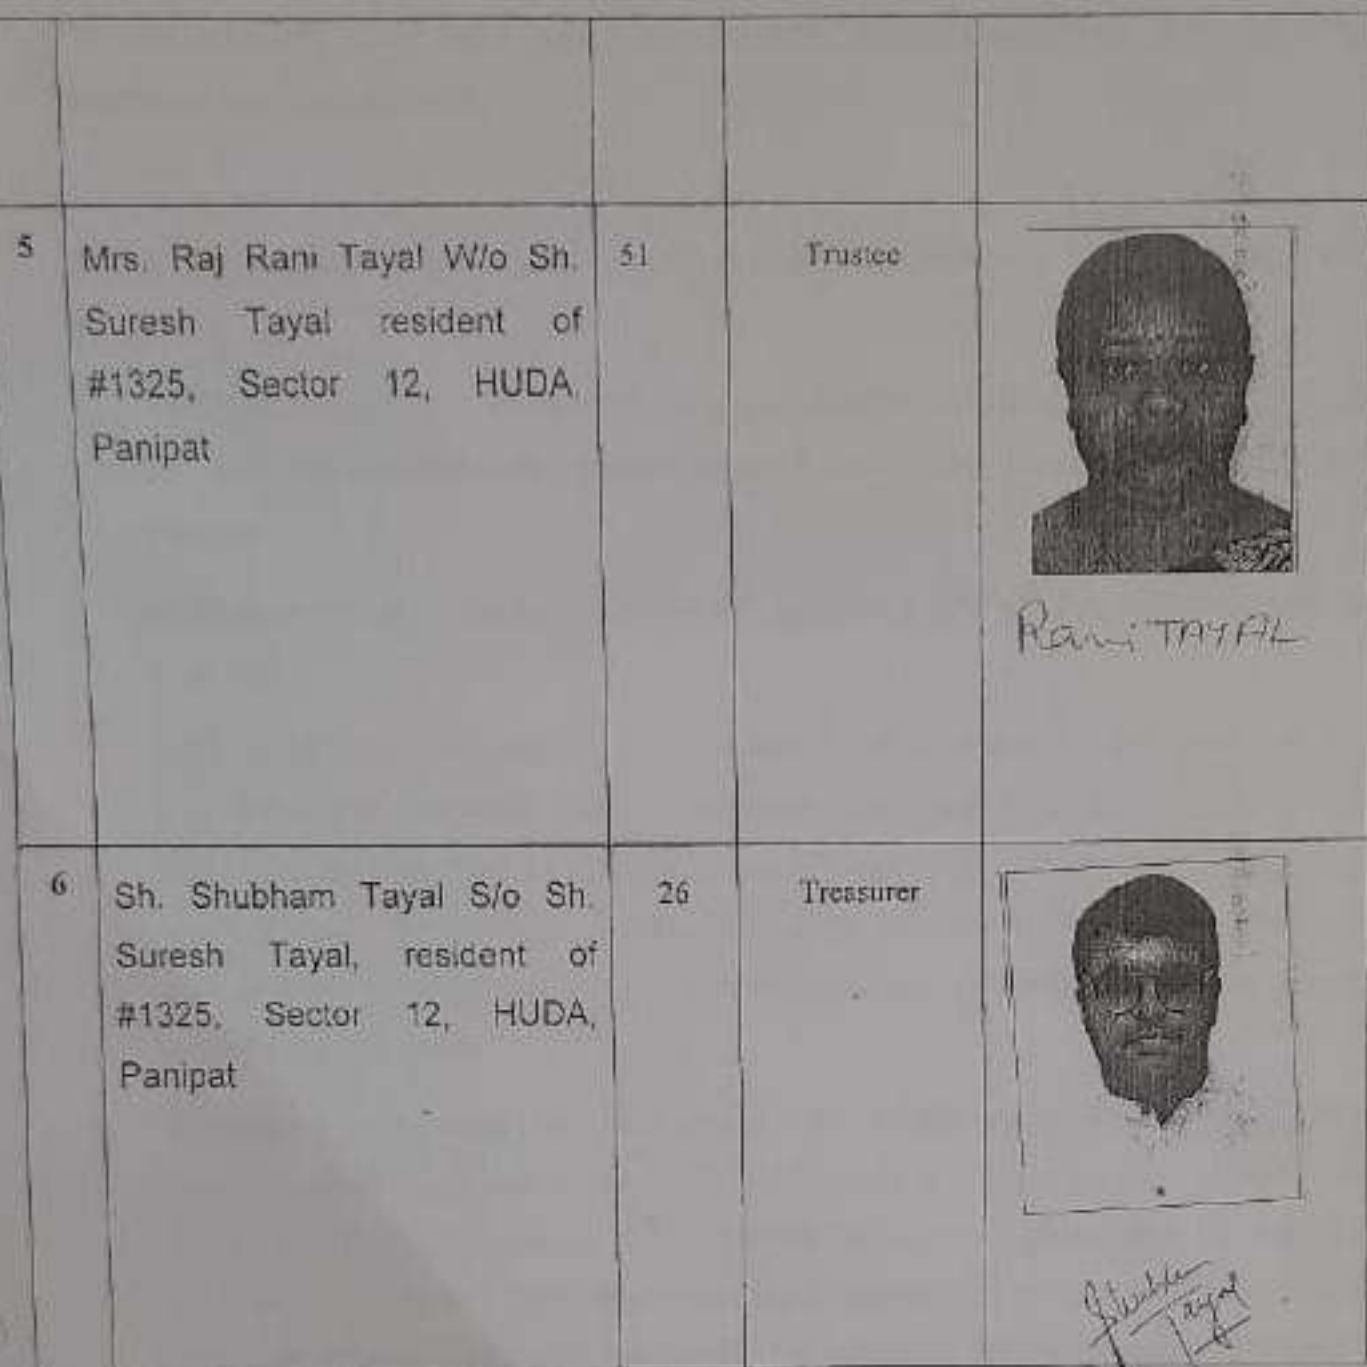 5
Mrs. Raj Rani Tayal W/o Sh.
Suresh Tayal resident of
#1325, Sector 12, HUDA,
Panipat
51
Trustee
Rani TAYAL
6
Sh. Shubham Tayal S/o Sh.
Suresh Tayal, resident of
#1325, Sector 12, HUDA,
Panipat
26
Treasurer
Shubham
Tayal